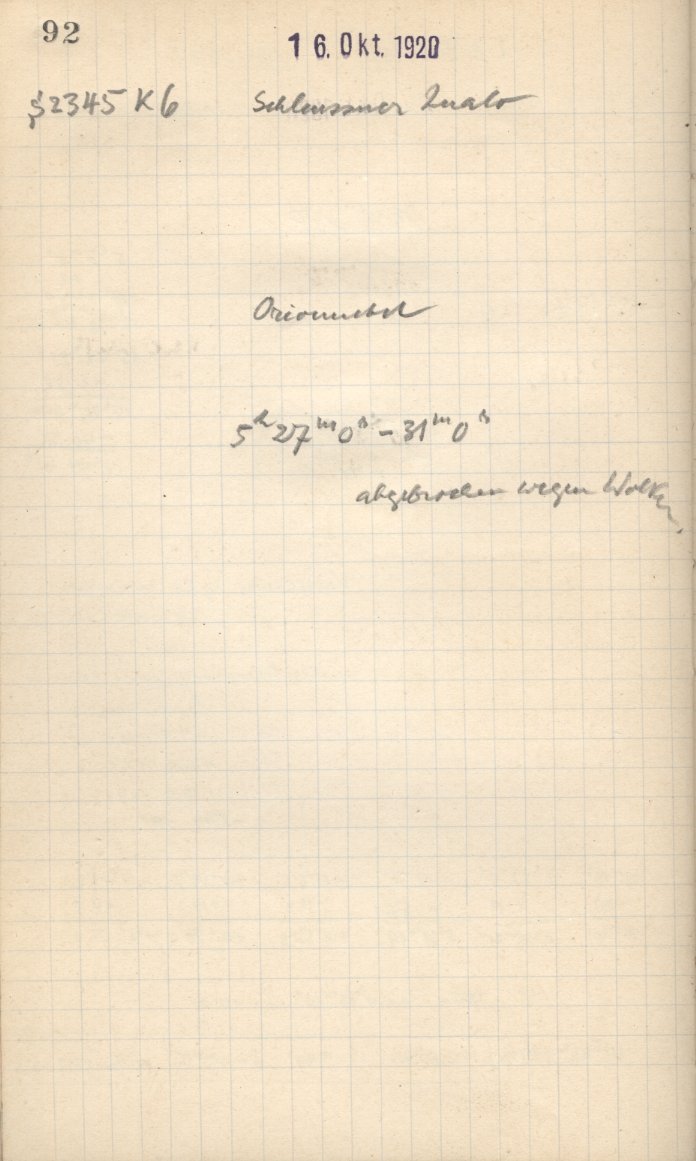 92
16. Okt. 1920
S2345 K6 Schleussner
Orionnebel
5h 27m 0s – 31m 0s
abgebrochen wegen Wolken.